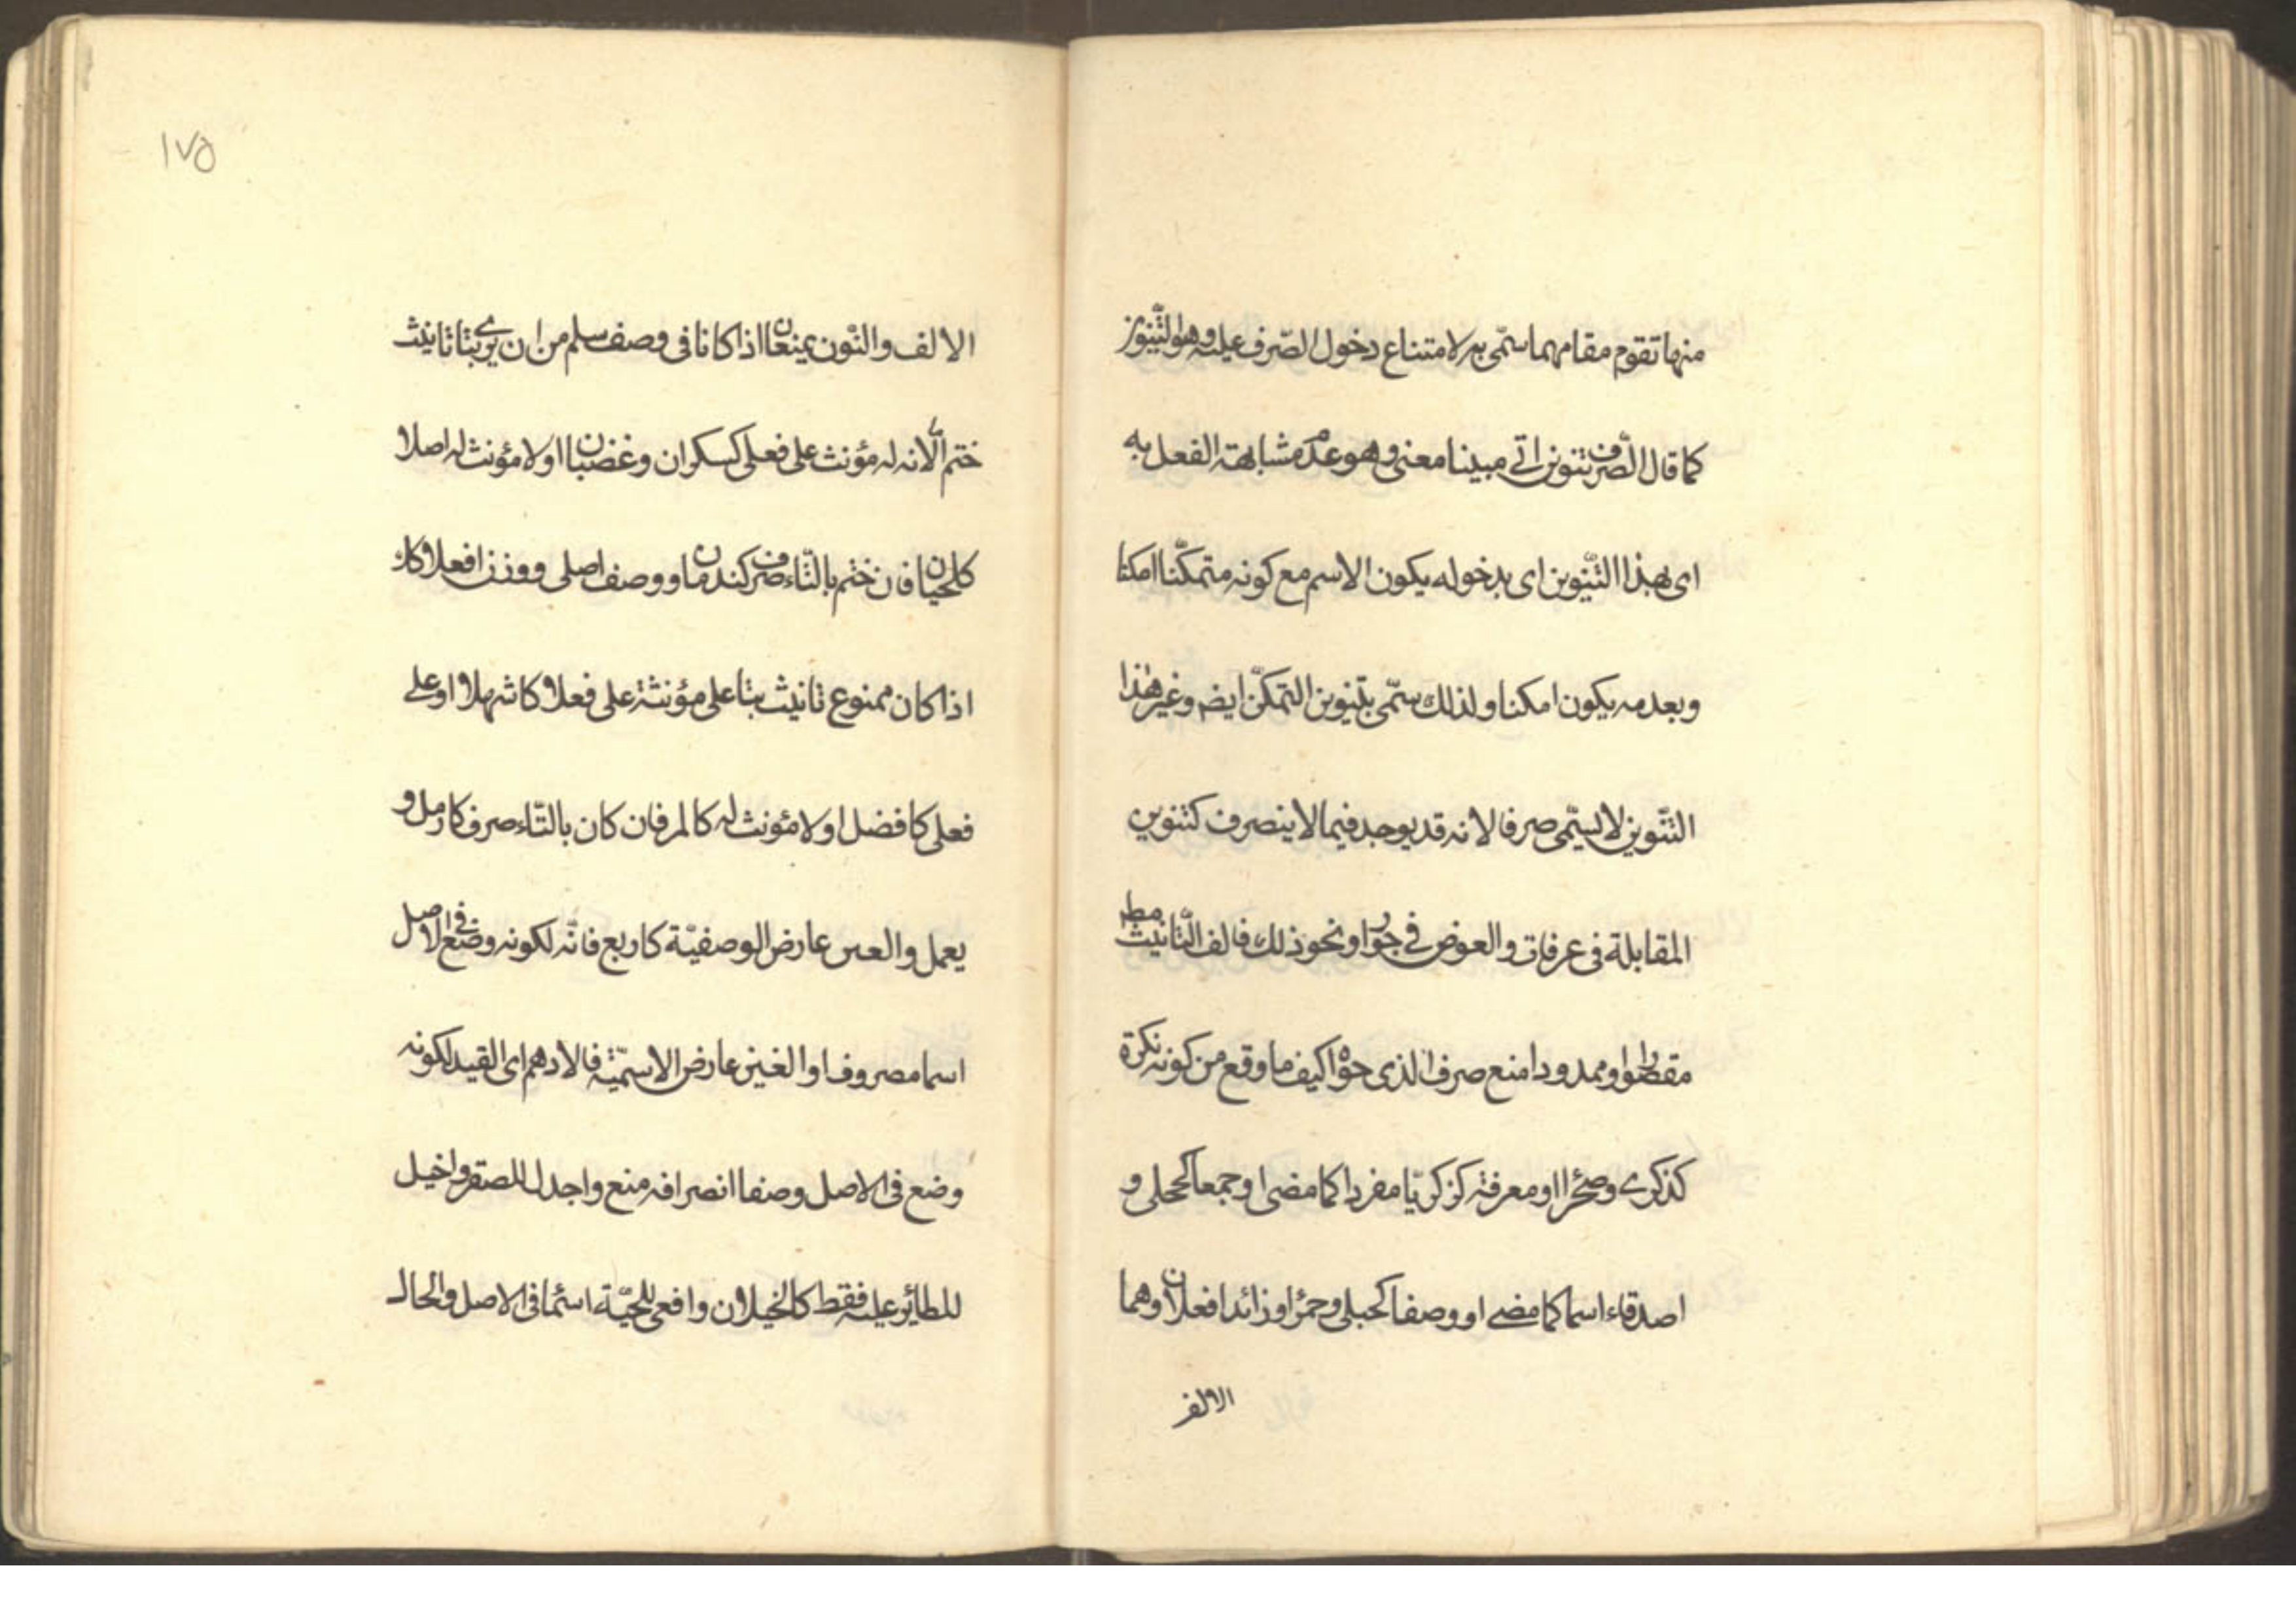 منها تقوم مقامهما سمّى به لامتناع دخول الصّرف عليه وهو التّنوين
كما قال الصّرف تنوين اتى مبينا معنى وهو عدم مشابهة الفعل به
اى بهذا التّنوين اى بدخوله يكون الاسم مع كونه متمكّنا امكنا
وبعدمه يكون امكنا ولذلك سمّى بتنوين التمكّن ايضم وغير هذا
التّنوين لا يسمّى صرفا لانه قد يوجد فيما لا ينصرف كتنوين
المقابلة فى عرفات والعوض فى جوار ونحو ذلك فالف التّانيث مطلقا
مقصورا وممدودا منع صرف الذى حواه كيف ما وقع من كونه نكرة
كذكرى وصحراا ومعرفة كزكريّا مفردا كما مضى او جمعا كحجلى و
اصدقاء اسما كما مضى او وصفا كحبلى وحمرا وزائدا فعلان وهما
الالف
١٧٥
الالف والنّون يمنعان اذا كانا فى وصف سلم من ان يرى بتا تانيث
ختم الّا لانه له مؤنث على فعلى كسكران وغضبان او لا مؤنث له اصلا
كلحيان فان ختم بالتّاء صرف كندمان ووصف اصلى ووزن افعلا كا
اذا كان ممنوع تانيث بتا على مؤنثة على فعلا كاشهلا او على
فعلى كافضل او لا مئونث له كالمر فان كان بالتّاء صرف كارمل و
يعمل والعس عارض الوصفيّة كاربع فانّه لكونه وضع فى الاصل
اسما مصروف او الغين عارض الاسميّة فالادهم اى القيد لكونه
وضع فى الاصل وصفا انصرافه منع واجدل للصقر واخيل
للطائر عليه فقط كالخيلان وافعى للحيّة اسما فى الاصل والحال